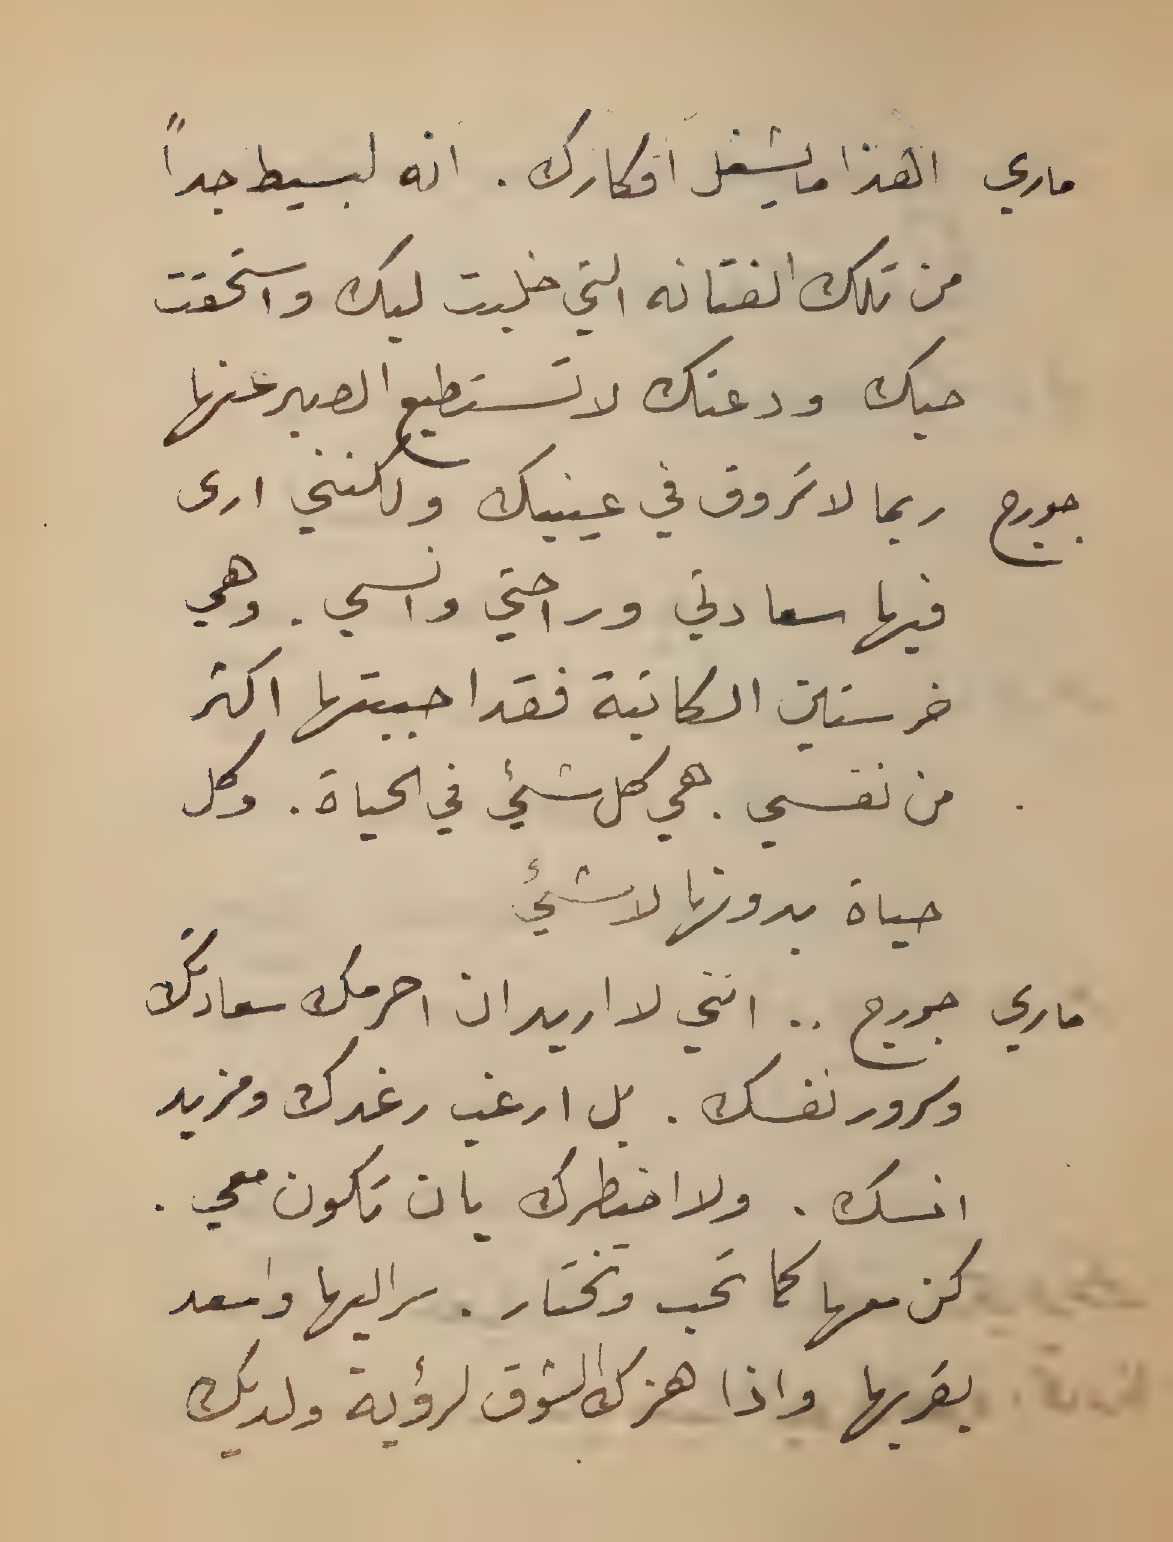 ماري اهذا ما يشغل افكارك . انه لبسيط جداً
من تلك الفتانه التي خلبت لبك واستحقت
حبك ودعتك لا تستطيع الصبر عنها
جورج ربما لا تروق في عينيك ولكنني ارى
فيها سعادتي وراحتي وانسي . وهي
خرستين الكاتبة فقد احببتها اكثر
من نفسي . هي كل شئ في الحياة . وكل
حياة بدونها لا شئ
ماري جورج .. انني لا اريد ان احرمك سعادتك
وسرور نفسك . بل ارغب رغدك ومزيد
انسك . ولا اضطرك بان تكون معي .
كن معها كما تحب وتختار . سر اليها واسعد
بقربها واذا هزك الشوق لرؤية ولديك